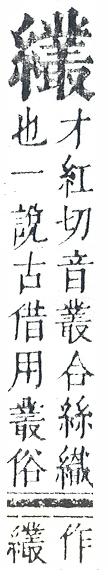 繱
才紅切音叢合絲織
也一說古借用叢俗
作
繱